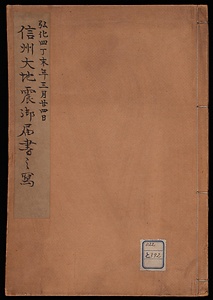 弘化四丁未年三月廿四日
信州大地震御届書之写